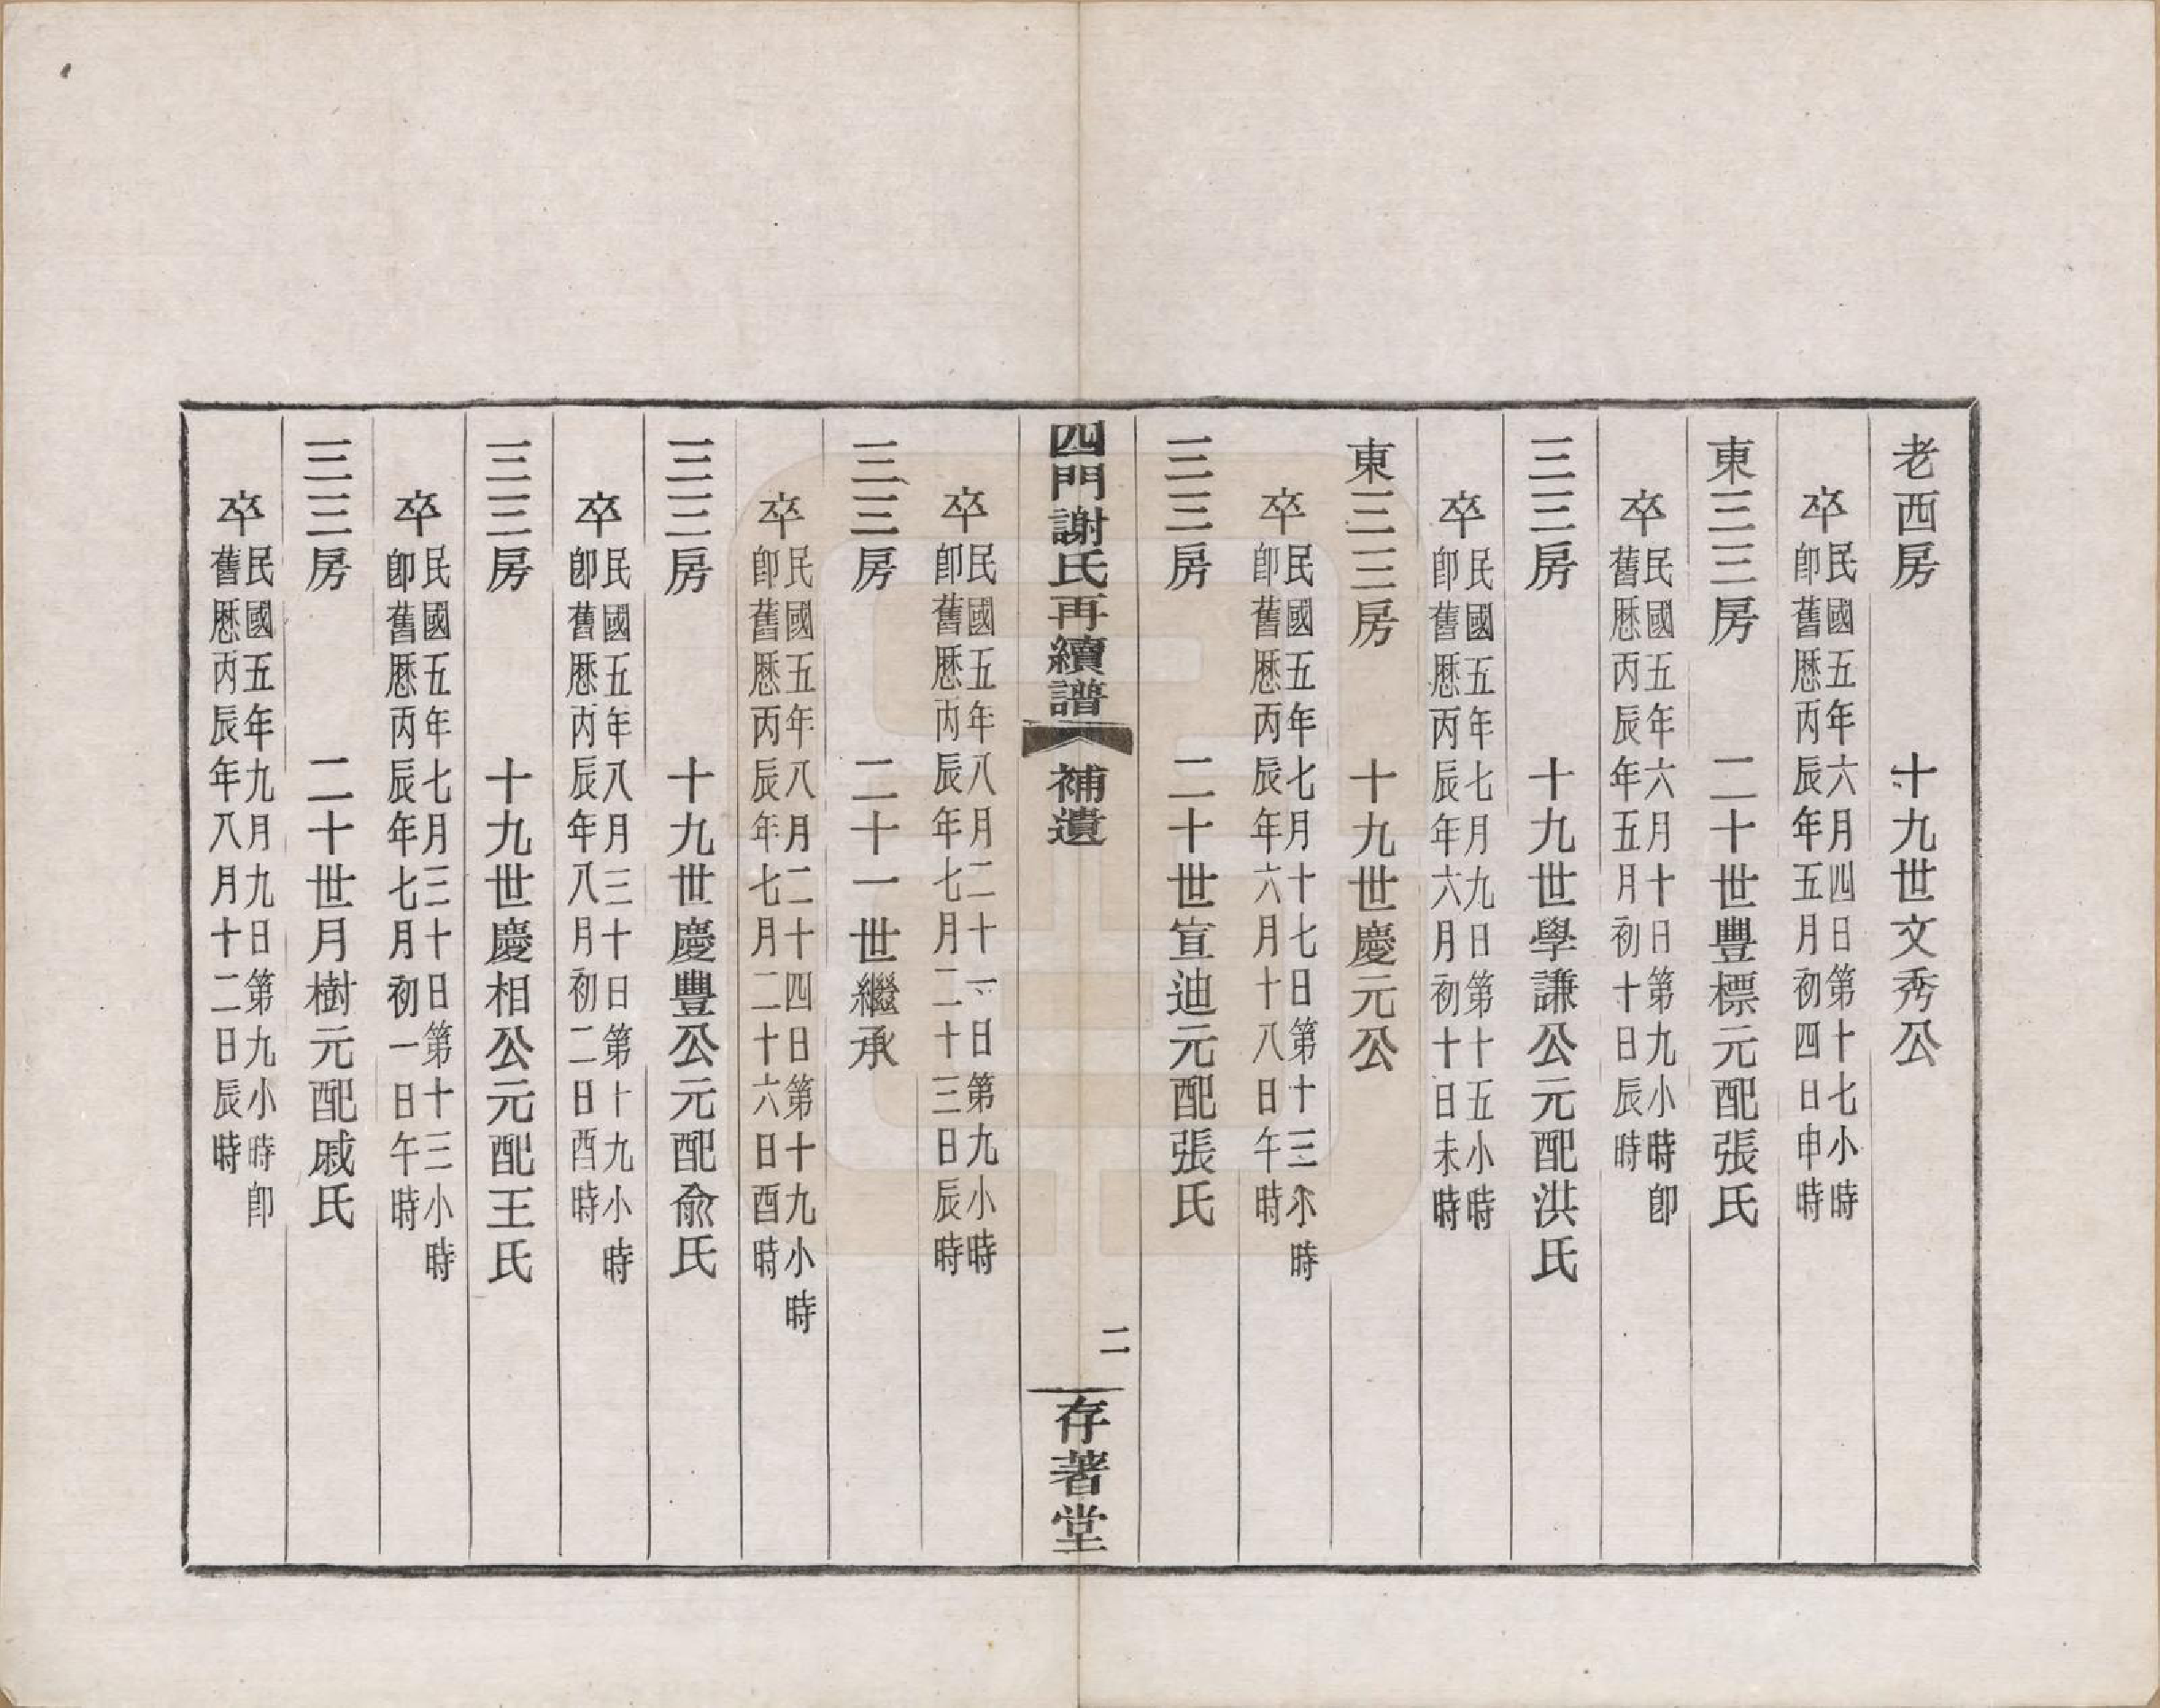 老西房　十九世文秀公
卒民國五年六月四日第十七小時
即舊厯丙辰年五月初四日申時
東三三房　二十世豐標元配張氏
卒民國五年六月十日第九小時卽
舊厯丙辰年五月初十日辰時
三三房　十九世學謙公元配洪氏
卒民國五年七月九日第十五小時
即舊厯丙辰年六月初十日未時
東三三房　十九世慶元公
卒民國五年七月十七日第十三小時
即舊厯丙辰年六月十八日午時
三三房　二十世宣迪元配張氏
四門謝氏再續譜　補遺　二　存著堂
卒民國五年八月二十一日第九小時
即舊厯丙辰年七月二十三日辰時
三三房　二十一世繼承
卒民國五年八月二十四日第十九小時
即舊厯丙辰年七月二十六日酉時
三三房　十九世慶豐公元配俞氏
卒民國五年八月三十日第十九小時
卽舊厯丙辰年八月初二日酉時
三三房　十九世慶相公元配王氏
卒民國五年七月三十日第十三小時
卽舊厯丙辰年七月初一日午時
三三房　二十世月樹元配戚氏
卒民國五年九月九日第九小時卽
舊厯丙辰年八月十二日辰時